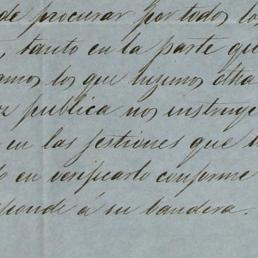 de procurar por todos los
, tanto en la parte que
amos los que hizimos otra
oz publica nos instruye
en las jestiones que
o en verificarlo conforme
sponde á su bandera.